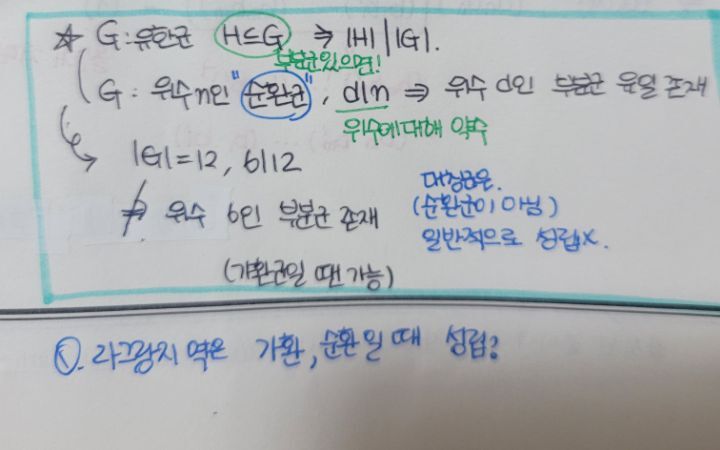 ☆ G:유한군 H≤G ⇒ |H| | |G|.
부분군있으면!
G : 위수n인 "순환군", d|n ⇒ 위수 d인 부분군 유일 존재
위수에대해 약수
|G|=12, 6|12
⇏ 위수 6인 부분군 존재
(가환군일 땐 가능)
대칭군은.
(순환군이 아님)
일반적으로 성립X.
Q. 라그랑지 역은 가환, 순환일 때 성립?